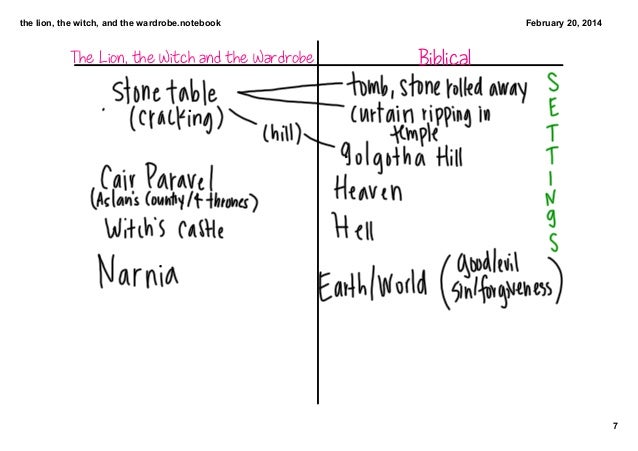 the lion, the witch, and the wardrobe.notebook
February 20, 2014
The Lion, the Witch and the Wardrobe
Biblical
Stone table
(cracking)
(hill)
Cair Paravel
(Aslan's Country/4 thrones)
Witch's castle
Narnia
tomb, stone rolled away
curtain ripping in
temple
golgotha Hill
Heaven
Hell
Earth/World (good/evil
sin/forgiveness)
SETTINgS
7